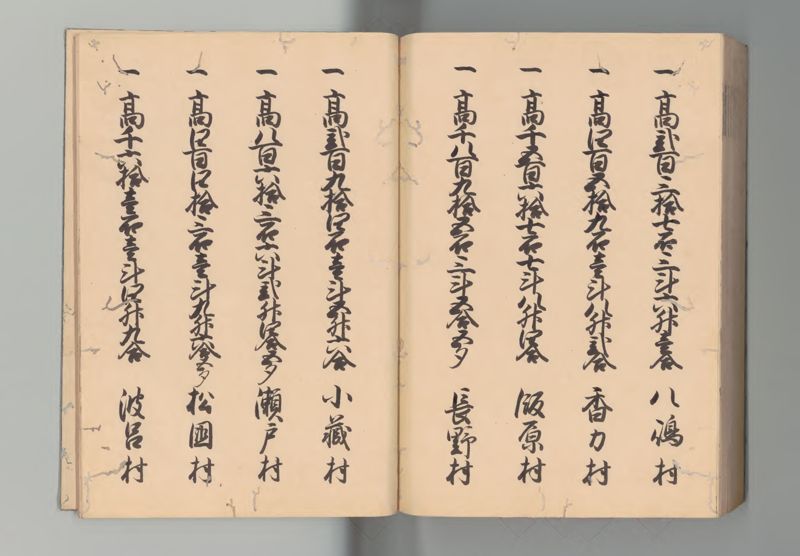 一 高弐百三拾七石三斗六升壱合 八嶋村
一 高四百五拾九石壱斗八升弐合 香力村
一 高千五百六拾七石七斗八升四合 飯原村
一 高千八百九拾五石三斗五合五夕 長野村
一 高弐百九拾四石壱斗五升六合 小蔵村
一 高八百六拾三石六斗弐升四合五夕 瀬戸村
一 高四百四拾三石壱斗九升五合 松國村
一 高千六拾壱石壱斗四升九合 波呂村